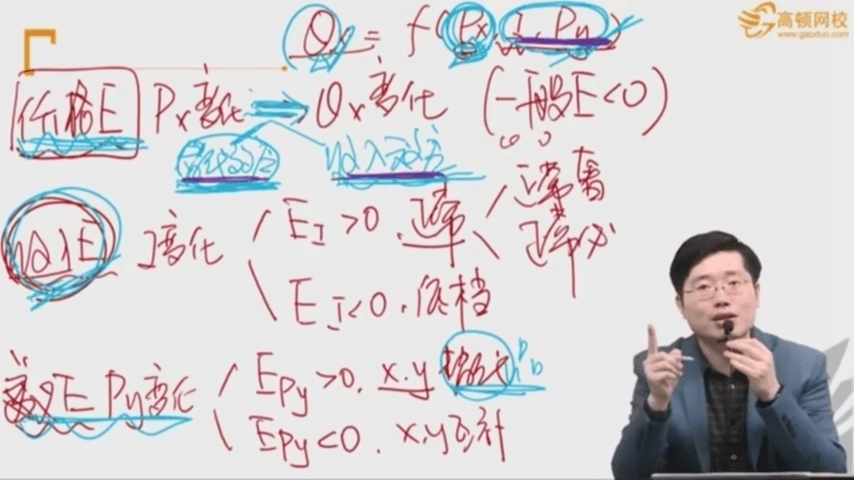 高顿网校
www.gaodun.com
Q = f(Px, I, Py)
价格E Px变化 Qx变化 (一般E<0)
替代效应 收入效应
收入E I变化 EI>0. 正常 正常奢
正常必
EI<0. 低档
交叉E Py变化 EPy>0. x.y 替代
EPy<0. x.y互补